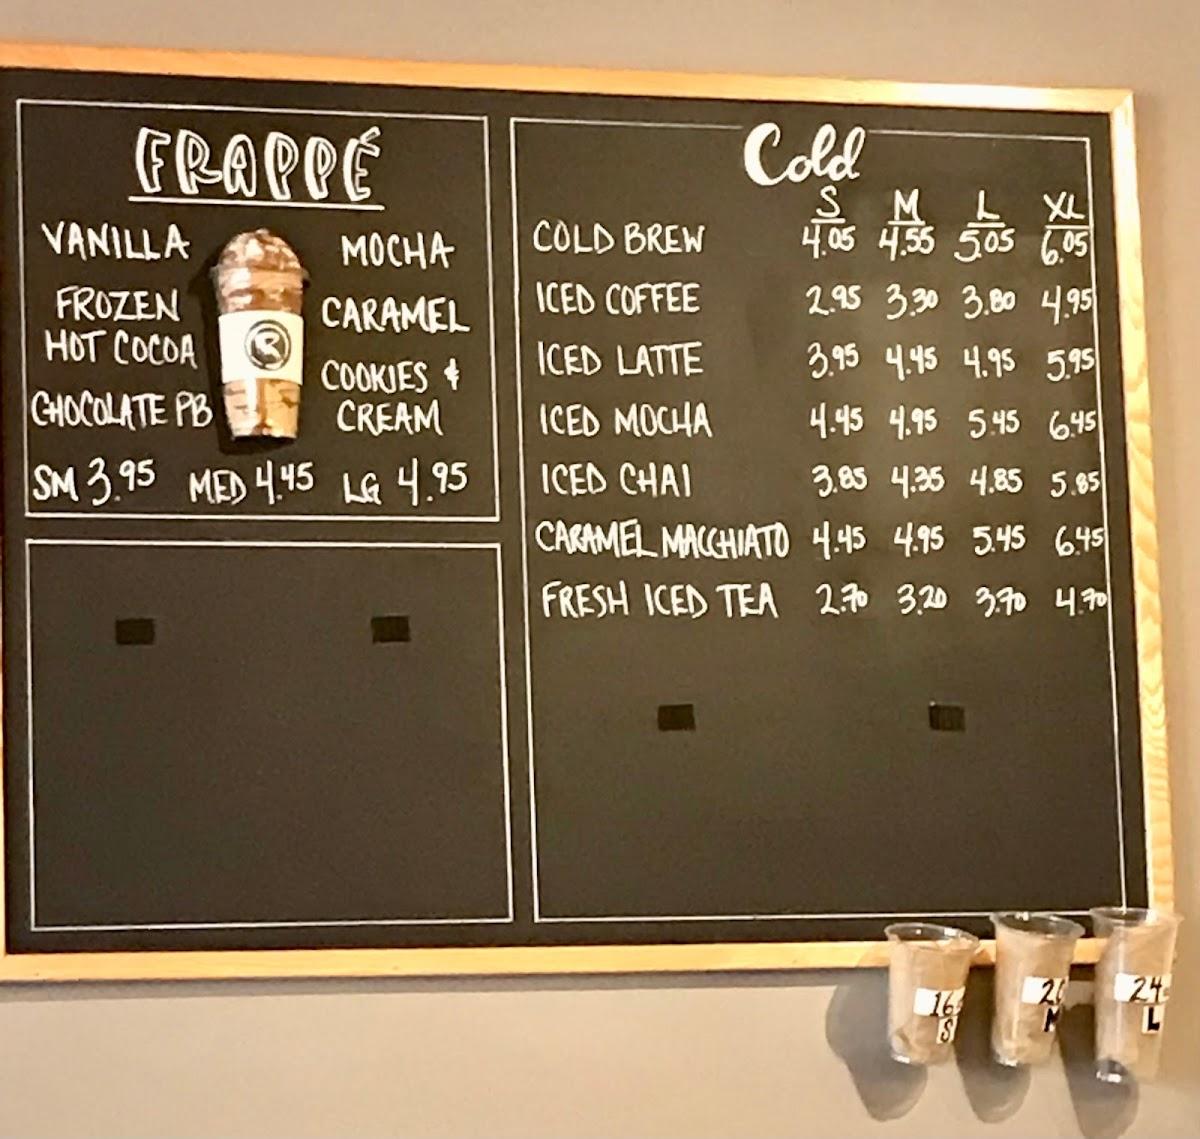 FRAPPÉ
VANILLA
FROZEN
HOT COCOA
CHOCOLATE PB
MOCHA
CARAMEL
COOKIES &
CREAM
R
SM 3.95 MED 4.45 LG 4.95
Cold
S M L XL
COLD BREW 4.05 4.55 5.05 6.05
ICED COFFEE 2.95 3.30 3.80 4.95
ICED LATTE 3.95 4.45 4.95 5.95
ICED MOCHA 4.45 4.95 5.45 6.45
ICED CHAI 3.85 4.35 4.85 5.85
CARAMEL MACCHIATO 4.45 4.95 5.45 6.45
FRESH ICED TEA 2.70 3.20 3.70 4.70
16
S
M
24
L